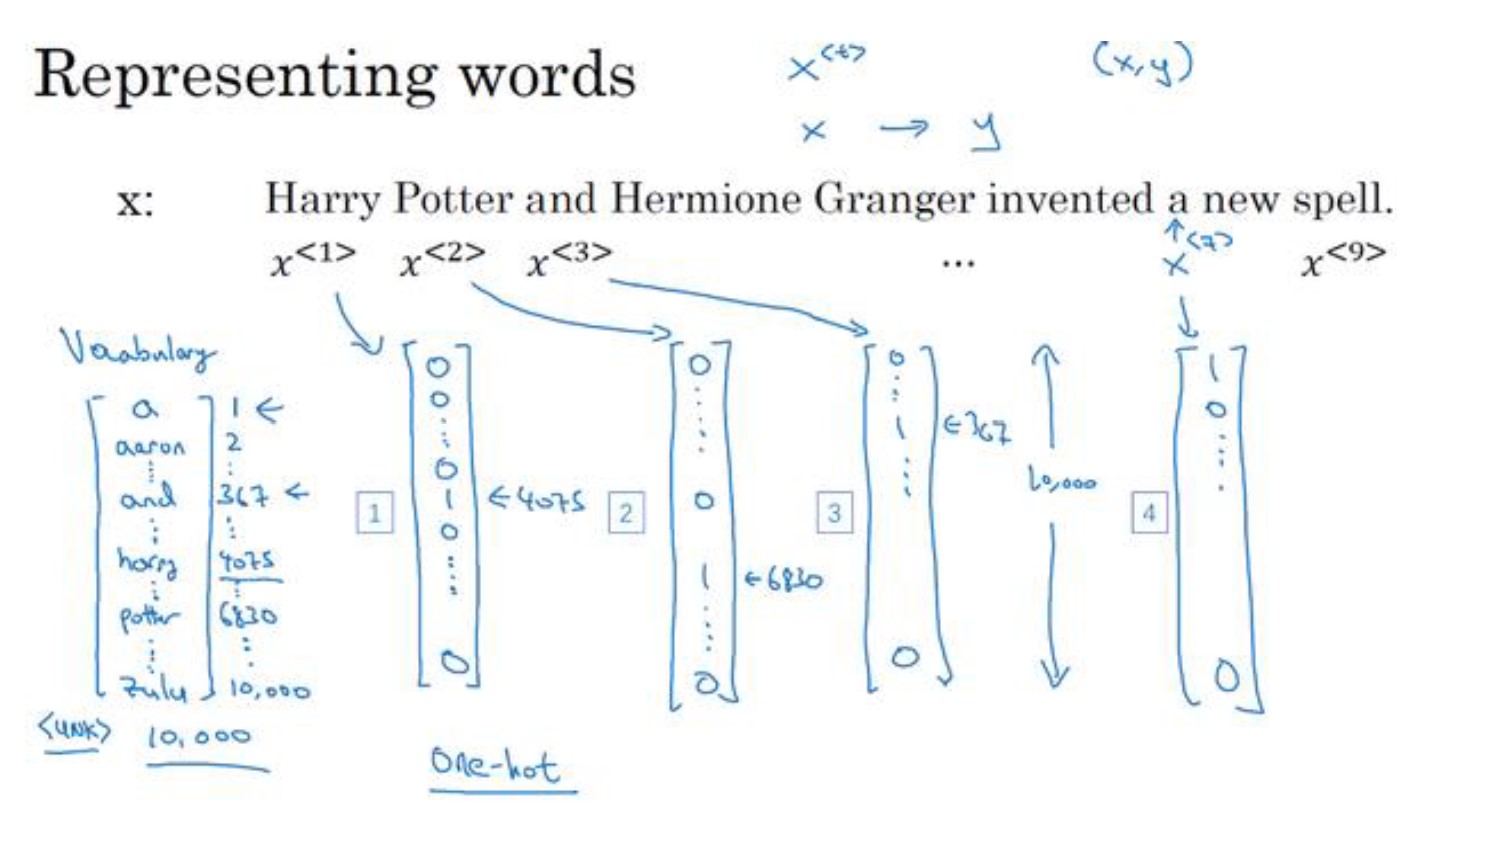 Representing words
x<t>
(x,y)
x → y
x: Harry Potter and Hermione Granger invented a new spell.
x<1> x<2> x<3> ... x<7> x<9>
Vocabulary
a 1 ←
aaron 2
and 367 ←
harry 4075
potter 6830
zulu 10,000
<UNK> 10,000
1
0
0
0
1
0
0
←4075
2
0
0
1
0
←6830
3
0
1
0
←367
10,000
4
1
0
0
One-hot